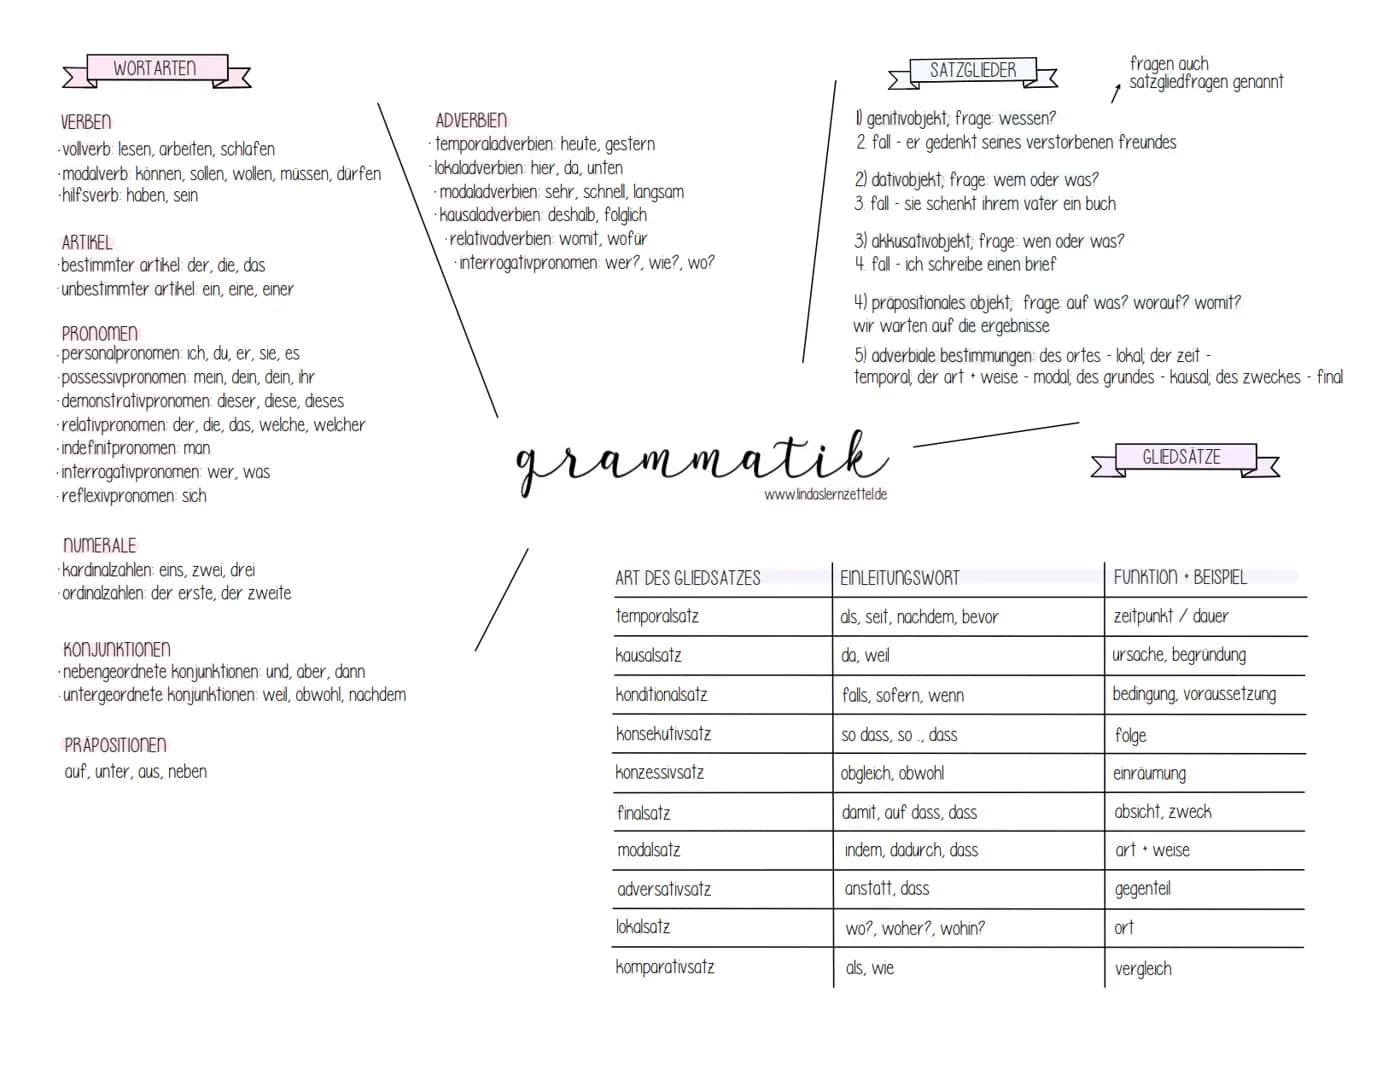 WORTARTEN
VERBEN
·vollverb: lesen, arbeiten, schlafen
·modalverb: können, sollen, wollen, müssen, dürfen
·hilfsverb: haben, sein
ARTIKEL
·bestimmter artikel: der, die, das
·unbestimmter artikel: ein, eine, einer
PRONOMEN
·personalpronomen: ich, du, er, sie, es
·possessivpronomen: mein, dein, dein, ihr
·demonstrativpronomen: dieser, diese, dieses
·relativpronomen: der, die, das, welche, welcher
·indefinitpronomen: man
·interrogativpronomen: wer, was
·reflexivpronomen: sich
NUMERALE
·kardinalzahlen: eins, zwei, drei
·ordinalzahlen: der erste, der zweite
KONJUNKTIONEN
·nebengeordnete konjunktionen: und, aber, dann
·untergeordnete konjunktionen: weil, obwohl, nachdem
PRÄPOSITIONEN
auf, unter, aus, neben
ADVERBIEN
·temporaladverbien: heute, gestern
·lokaladverbien: hier, da, unten
·modaladverbien: sehr, schnell, langsam
·kausaladverbien: deshalb, folglich
·relativadverbien: womit, wofür
·interrogativpronomen: wer?, wie?, wo?
SATZGLIEDER
fragen auch
satzgliedfragen genannt
1) genitivobjekt; frage: wessen?
2. fall - er gedenkt seines verstorbenen freundes
2) dativobjekt; frage: wem oder was?
3. fall - sie schenkt ihrem vater ein buch
3) akkusativobjekt; frage: wen oder was?
4. fall - ich schreibe einen brief
4) präpositionales objekt; frage: auf was? worauf? womit?
wir warten auf die ergebnisse
5) adverbiale bestimmungen: des ortes - lokal; der zeit -
temporal; der art + weise - modal; des grundes - kausal; des zweckes - final
grammatik
www.lindaslernzettel.de
GLIEDSÄTZE
ART DES GLIEDSATZES EINLEITUNGSWORT FUNKTION + BEISPIEL
temporalsatz als, seit, nachdem, bevor zeitpunkt / dauer
kausalsatz da, weil ursache, begründung
konditionalsatz falls, sofern, wenn bedingung, voraussetzung
konsekutivsatz so dass, so .., dass folge
konzessivsatz obgleich, obwohl einräumung
finalsatz damit, auf dass, dass absicht, zweck
modalsatz indem, dadurch, dass art + weise
adversativsatz anstatt, dass gegenteil
lokalsatz wo?, woher?, wohin? ort
komparativsatz als, wie vergleich